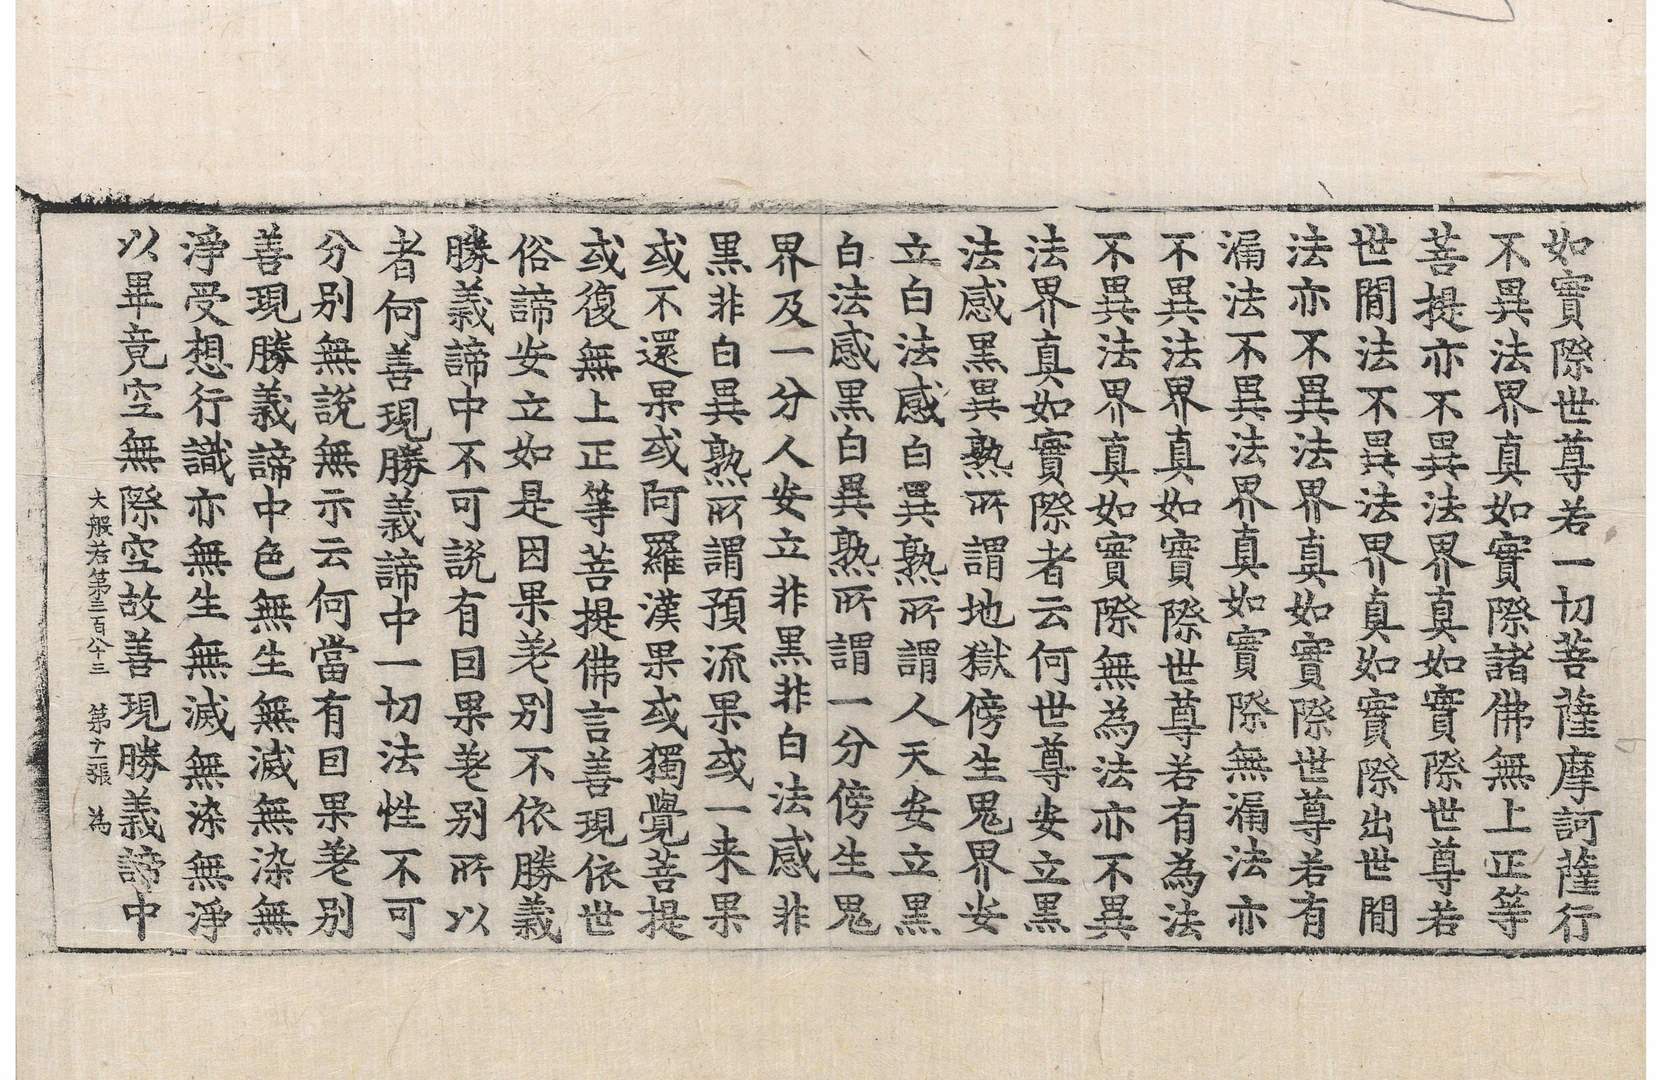 如實際世尊若一切菩薩摩訶薩行
不異法界真如實際諸佛無上正等
菩提亦不異法界真如實際世尊若
世間法不異法界真如實際出世間
法亦不異法界真如實際世尊若有
漏法不異法界真如實際無漏法亦
不異法界真如實際世尊若有為法
不異法界真如實際無為法亦不異
法界真如實際者云何世尊安立黑
法感黑異熟所謂地獄傍生鬼界安
立白法感白異熟所謂人天安立黑
白法感黑白異熟所謂一分傍生鬼
界及一分人安立非黑非白法感非
黑非白異熟所謂預流果或一来果
或不還果或阿羅漢果或獨覺菩提
或復無上正等菩提佛言善現依世
俗諦安立如是因果差別不依勝義
勝義諦中不可說有因果差別所以
者何善現勝義諦中一切法性不可
分別無說無示云何當有因果差別
善現勝義諦中色無生無滅無染無
淨受想行識亦無生無滅無染無淨
以畢竟空無際空故善現勝義諦中
大般若第三百八十三 第十一張 為